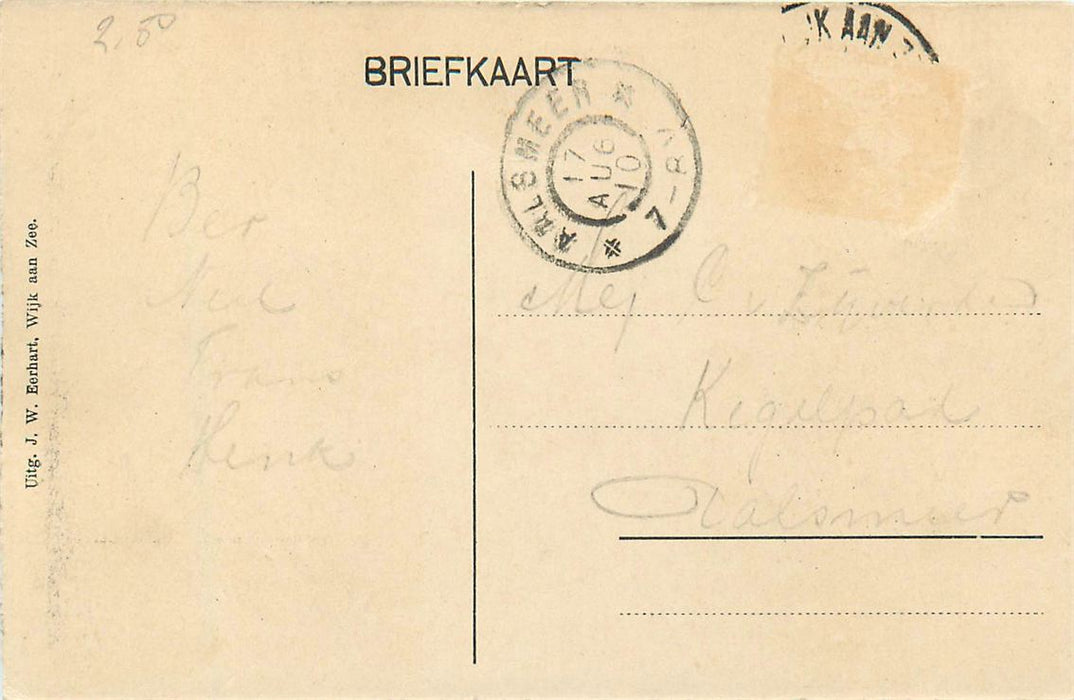 2,50
BRIEFKAART
JK AAN Z
AALSMEER
17
AUG
10
7-8V
Ber
Nel
Frans
Henk
Mej C v
Kegelpad
Aalsmeer
Uitg. J. W. Eerhart, Wijk aan Zee.